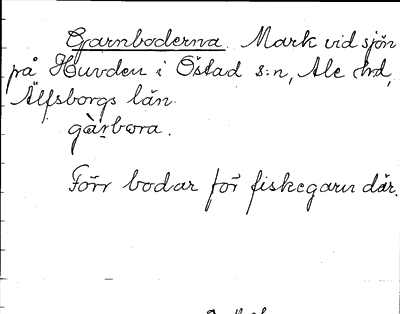 Garnboderna. Mark vid sjön
på Huvden i Östad s:n, Ale hd,
Älfsborgs län.
gàṛbωra.
Förr bodar för fiskegarn där.